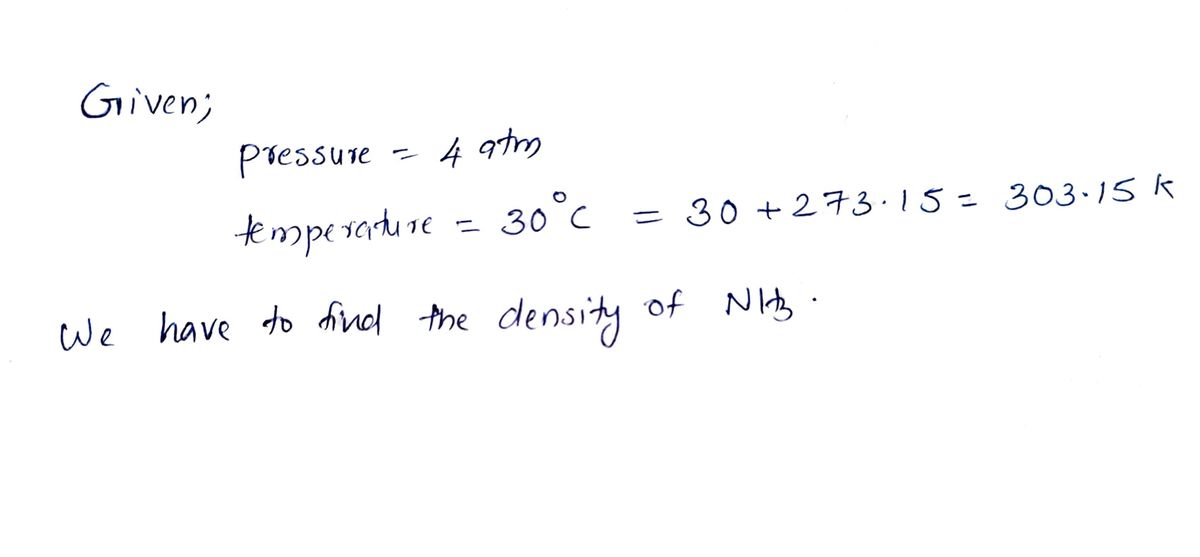 Given;
pressure = 4 atm
temperature = 30°C = 30 + 273.15 = 303.15 K
We have to find the density of NH3.